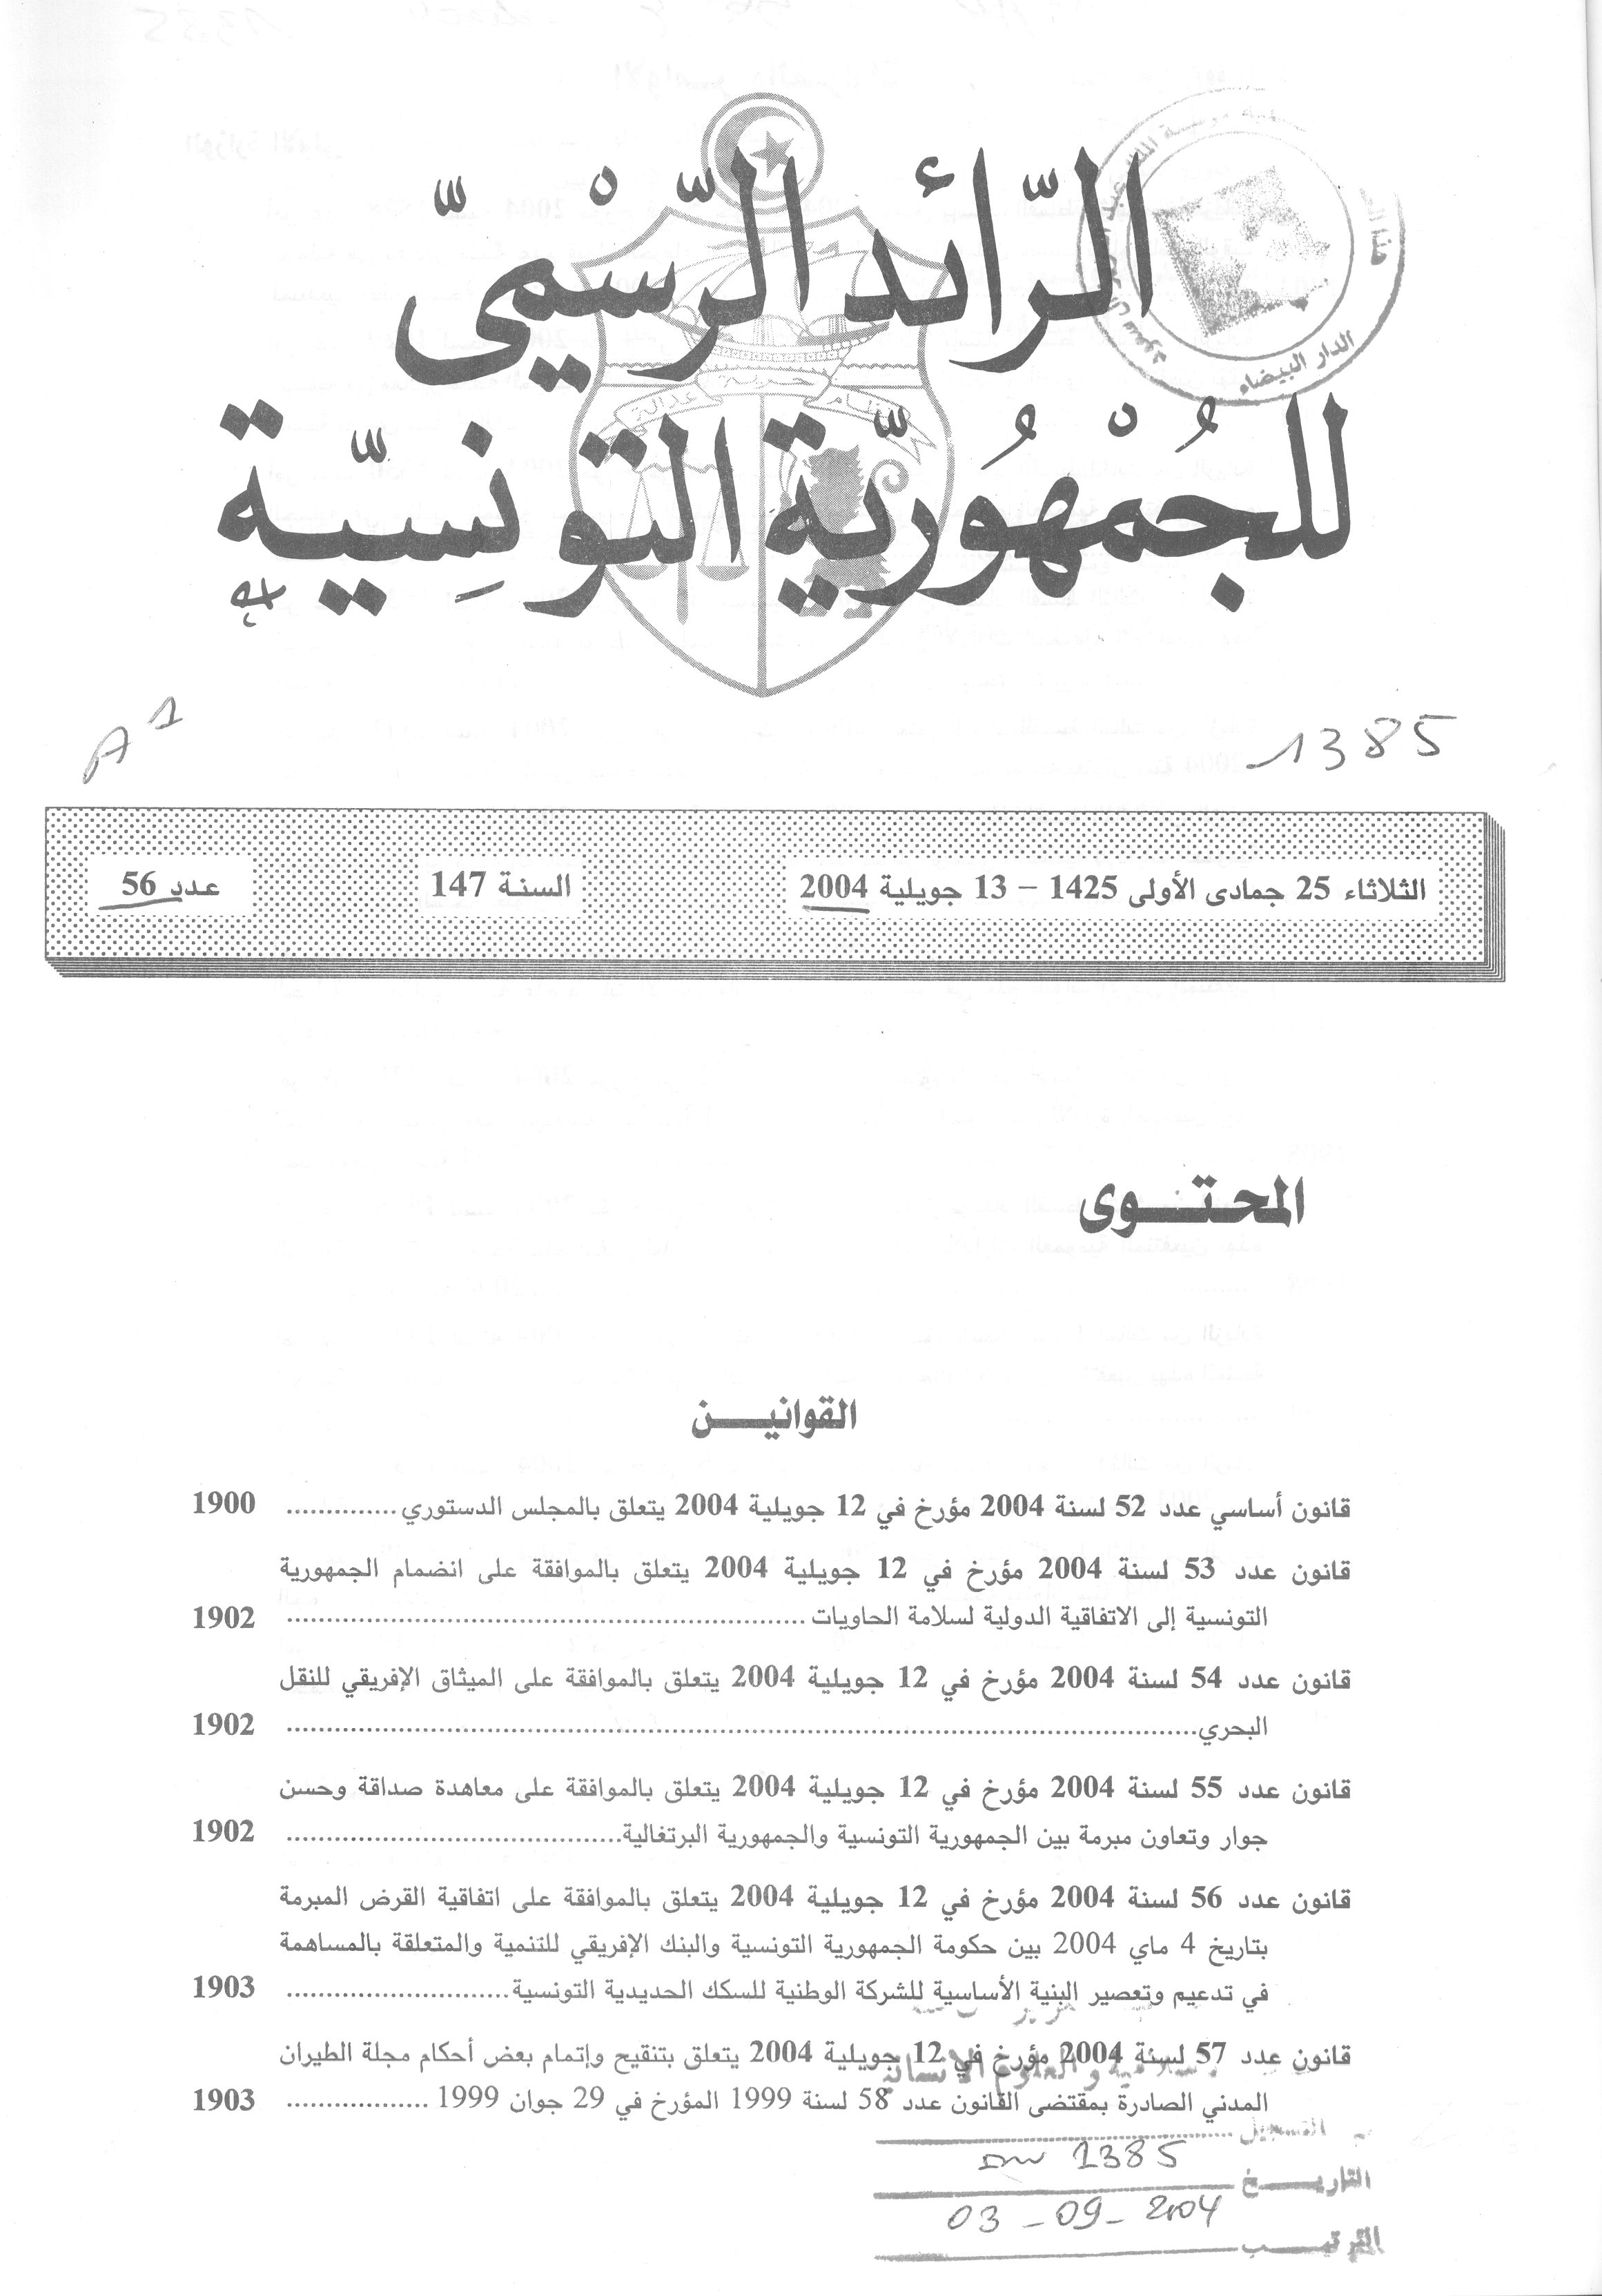 الرّائد الرّسْميّ
للجُمْهُوريّة التّونِسيّة
نظام
حرية
عدالة
الدار البيضاء
A1
1385
الثلاثاء 25 جمادى الأولى 1425 – 13 جويلية 2004
السنة 147
عدد 56
المحتوى
القوانين
قانون أساسي عدد 52 لسنة 2004 مؤرخ في 12 جويلية 2004 يتعلق بالمجلس الدستوري .............. 1900
قانون عدد 53 لسنة 2004 مؤرخ في 12 جويلية 2004 يتعلق بالموافقة على انضمام الجمهورية
التونسية إلى الاتفاقية الدولية لسلامة الحاويات ................................ 1902
قانون عدد 54 لسنة 2004 مؤرخ في 12 جويلية 2004 يتعلق بالموافقة على الميثاق الإفريقي للنقل
البحري................................ 1902
قانون عدد 55 لسنة 2004 مؤرخ في 12 جويلية 2004 يتعلق بالموافقة على معاهدة صداقة وحسن
جوار وتعاون مبرمة بين الجمهورية التونسية والجمهورية البرتغالية................................ 1902
قانون عدد 56 لسنة 2004 مؤرخ في 12 جويلية 2004 يتعلق بالموافقة على اتفاقية القرض المبرمة
بتاريخ 4 ماي 2004 بين حكومة الجمهورية التونسية والبنك الإفريقي للتنمية والمتعلقة بالمساهمة
في تدعيم وتعصير البنية الأساسية للشركة الوطنية للسكك الحديدية التونسية............................ 1903
قانون عدد 57 لسنة 2004 مؤرخ في 12 جويلية 2004 يتعلق بتنقيح وإتمام بعض أحكام مجلة الطيران
المدني الصادرة بمقتضى القانون عدد 58 لسنة 1999 المؤرخ في 29 جوان 1999 .................. 1903
والعلوم الانسانية
التسجيل
1385
التاريخ
03-09-2004
الترتيب